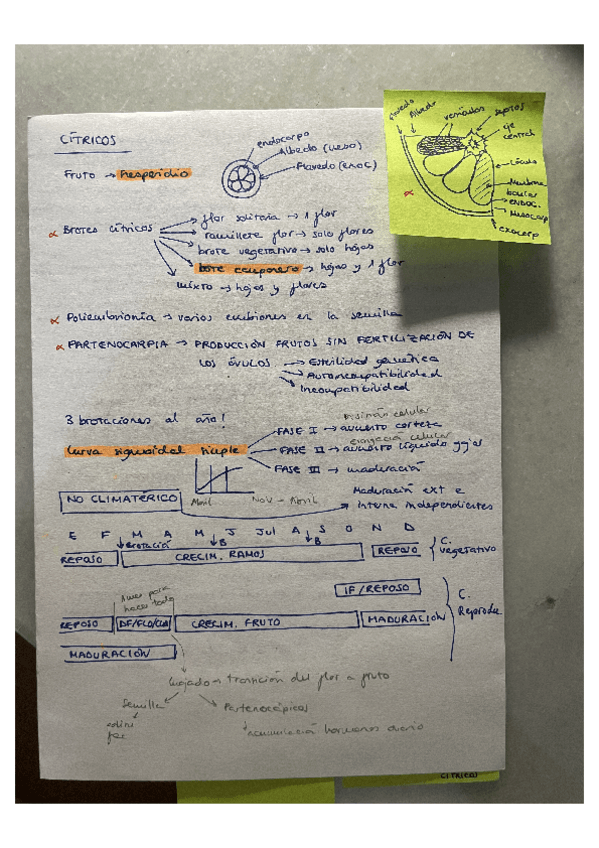 CÍTRICOS
FRUTO → Hesperidio
endocarpo
Albedo (MESO)
Flavedo (EXOC)
Flavedo
Albedo
vesículas
septos
eje central
Lóculo
Membrana
ENDOC.
Mesocarp
exocarp
Brotes cítricos → flor solitaria → 1 flor
ramillete flor → solo flores
brote vegetativo → solo hojas
bote campanero → hojas y 1 flor
mixto → hojas y flores
Poliembrionía → varios embriones en la semilla
PARTENOCARPIA → PRODUCCIÓN FRUTOS SIN FERTILIZACIÓN DE
LOS ÓVULOS → Esterilidad genética
Autoincompatibilidad
Incompatibilidad
3 brotaciones al año!
división celular
FASE I → aumento corteza
elongación celular
Curva sigmoidal simple
FASE II → aumento líquido
FASE III → maduración
Abril
Nov → Abril
NO CLIMATÉRICO
Maduración ext e
interna independientes
E F M A M J Jul A S O N D
Brotación B B
REPOSO CRECIM. RAMOS REPOSO
C. vegetativo
1 mes para
hacer todo
IF/REPOSO
REPOSO CRECIM. FRUTO MADURACIÓN
C. Reproduc
MADURACIÓN
cuajado → transición del flor a fruto
Semilla
Partenocápicos
acumulación hormonas ovario
CÍTRICOS